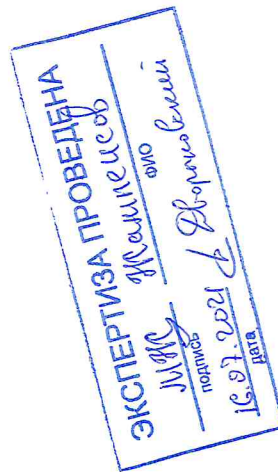 ЭКСПЕРТИЗА ПРОВЕДЕНА
МЖ Жампеисов
подпись ФИО
16.07.2021 Дворниковский
дата